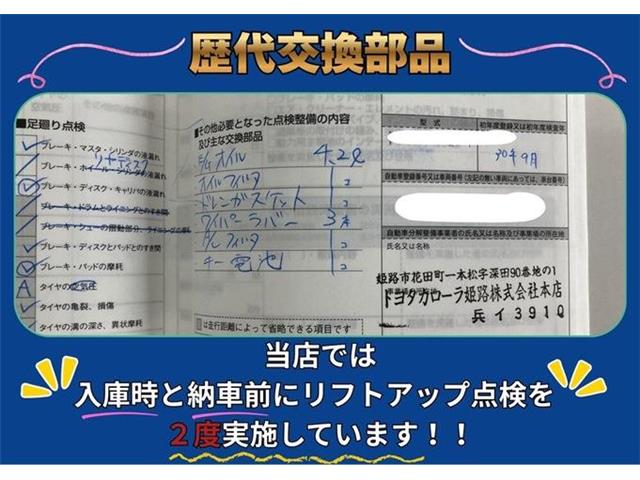 歴代交換部品
■足廻り点検
ブレーキ・マスタ・シリンダの液漏れ
リヤディスク
ブレーキ・ホイール・シリンダの液漏れ
ブレーキ・ディスク・キャリパの液漏れ
ブレーキ・ドラムとライニングとのすき間
ブレーキ・シューの摺動部分、ライニングの摩耗
ブレーキ・ディスクとパッドとのすき間
ブレーキ・パッドの摩耗
A タイヤの空気圧
タイヤの亀裂、損傷
タイヤの溝の深さ、異状摩耗
■その他必要となった点検整備の内容
及び主な交換部品
E/gオイル 4.2ℓ
オイルフィルタ 1コ
ドレンガスケット 1コ
ワイパーラバー 3本
A/cフィルタ 1コ
キー電池 1コ
は走行距離によって省略できる項目です
型式
初年度登録又は初年度検査年
30年9月
自動車登録番号又は車両番号（左記の無い車両にあっては、車台番号）
自動車分解整備事業者の氏名又は名称及び事業場の所在地
氏名又は名称
姫路市花田町一本松字深田90番地の1
トヨタカローラ姫路株式会社本店
兵イ3910
当店では
入庫時と納車前にリフトアップ点検を
2度実施しています！！